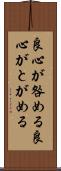 良心が咎める良
心がとがめる